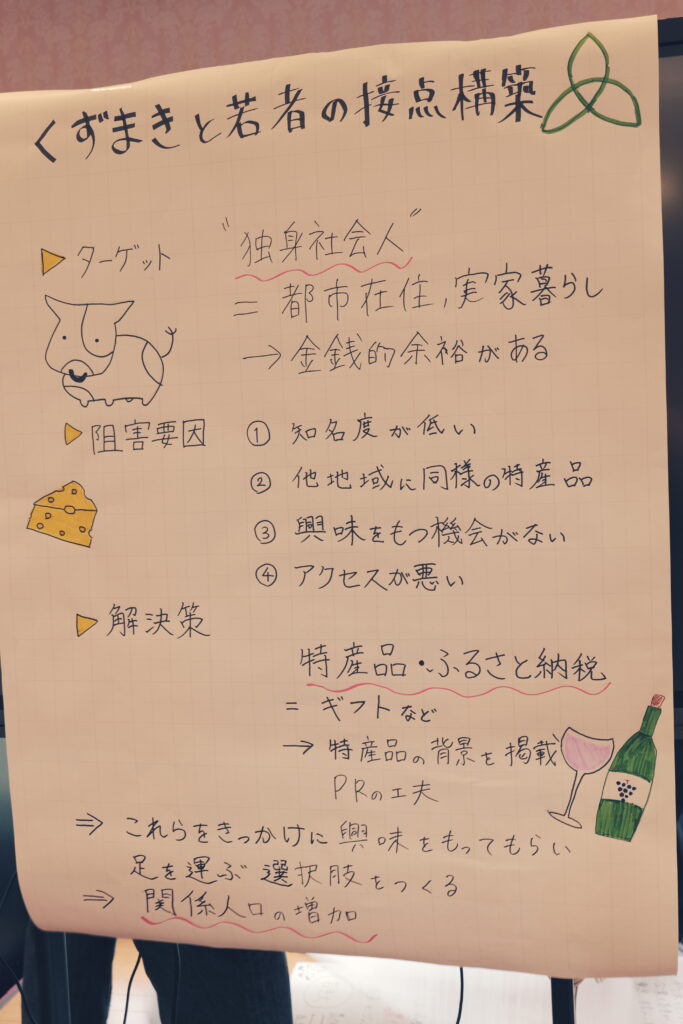 くずまきと若者の接点構築
▶ターゲット "独身社会人"
= 都市在住,実家暮らし
→ 金銭的余裕がある
▶阻害要因 ① 知名度が低い
② 他地域に同様の特産品
③ 興味をもつ機会がない
④ アクセスが悪い
▶解決策
特産品・ふるさと納税
= ギフトなど
→ 特産品の背景を掲載
PRの工夫
⇒ これらをきっかけに興味をもってもらい
足を運ぶ選択肢をつくる
⇒ 関係人口の増加